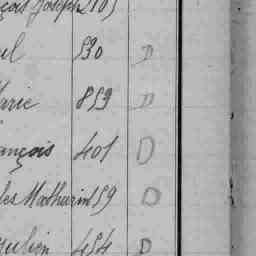 çois Joseph 2105
el 530 D
Marie 859 D
ançois 401 D
les Mathurin 159 D
Julien 454 D